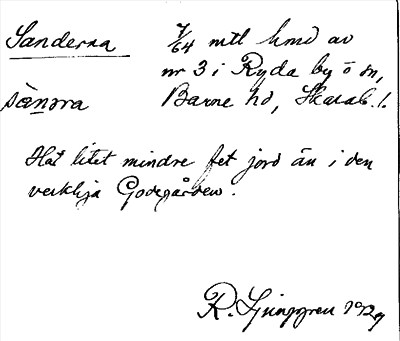 Sanderna 7/64 mtl hmd av
nr 3 i Ryda by o sn,
sànəra Barne hd, Skarab. l.
Har litet mindre fet jord än i den
verkliga Godegården.
R. Ljunggren 1929